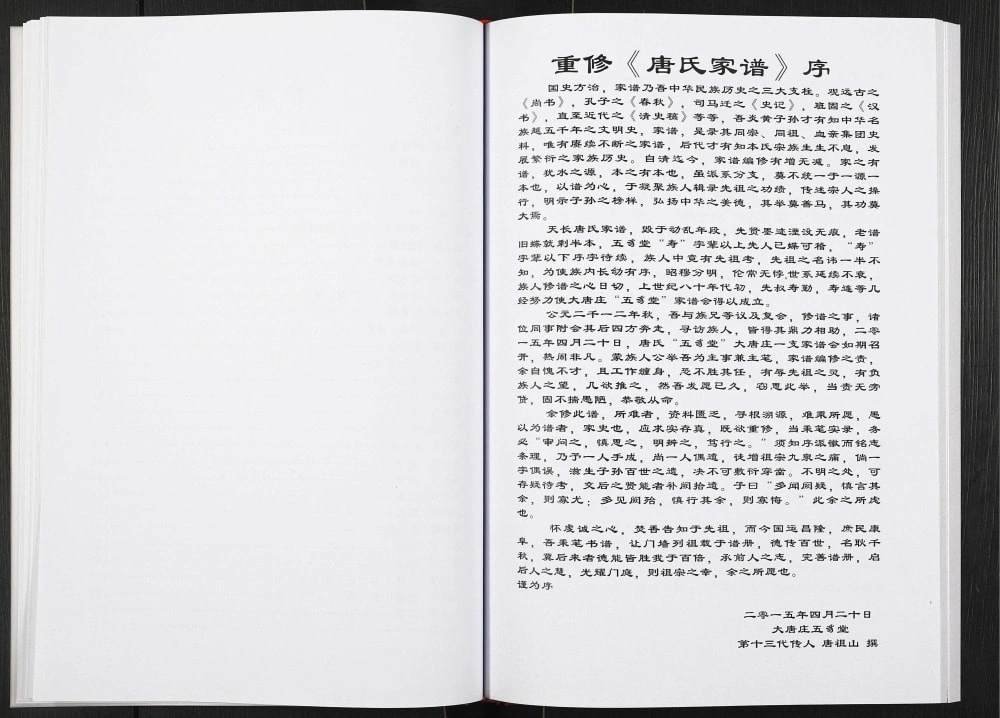 重修《唐氏家谱》序
国史方治，家谱乃吾中华民族历史之三大支柱。观远古之
《尚书》，孔子之《春秋》，司马迁之《史记》，班固之《汉
书》，直至近代之《清史稿》等等，吾炎黄子孙才有知中华名
族越五千年之文明史，家谱，是录其同宗、同祖、血亲集团史
料，唯有赓续不断之家谱，后代才有知本氏宗族生生不息，发
展繁衍之家族历史。自清迄今，家谱编修有增无减。家之有
谱，犹水之源，本之有本也，虽派系分支，莫不统一于一源一
本也，以谱为心，于凝聚族人辑录先祖之功绩，传述宗人之操
行，明示子孙之榜样，弘扬中华之美德，其举莫善马，其功莫
大焉。
天长唐氏家谱，毁于动乱年段，先贤墨迹湮没无痕，老谱
旧蝶就剩半本，五堂“寿”字辈以上先人已蝶可稽，“寿”
字辈以下序字待续，族人中竟有先祖考，先祖之名讳一半不
知，为使族内长幼有序，昭穆分明，伦常无悖,世系延续不衰，
族人修谱之心日切，上世纪八十年代初，先叔寿勤，寿连等几
经努力使大唐庄“五堂”家谱会得以成立。
公元二千一二年秋，吾与族兄等议及复会，修谱之事，诸
位同事附会其后四方奔走，寻访族人，皆得其鼎力相助，二零
一五年四月二十日，唐氏“五堂”大唐庄一支家谱会如期召
开，热闹非凡。蒙族人公举吾为主事兼主笔，家谱编修之责，
余自愧不才，且工作缠身，恐不胜其任，有辱先祖之灵，有负
族人之望，几欲推之，然吾发愿已久，窃思此举，当责无旁
贷，固不揣愚陋，恭敬从命。
余修此谱，所难者，资料匮乏，寻根溯源，难乘所愿，愚
以为谱者，家史也，应求实存真，既欲重修，当秉笔实录，务
必“审问之，慎思之，明辨之，笃行之。”须知序派徽而铭志
条理，乃予一人手成，尚一人偶遗，徒增祖宗九泉之痛，倘一
字偶误，滋生子孙百世之遗，决不可敷衍穿凿。不明之处，可
存疑待考，交后之贤能者补阙拾遗。子曰“多闻阙疑，慎言其
余，则寡尤；多见阙殆，慎行其余，则寡悔。”此余之所虑
也。
怀虔诚之心，焚香告知于先祖，而今国运昌隆，庶民康
阜，吾秉笔书谱，让门墙列祖载于谱册，德传百世，名耿千
秋，冀后来者德能皆胜我于百倍，承前人之志，完善谱册，启
后人之慧，光耀门庭，则祖宗之幸，余之所愿也。
谨为序
二零一五年四月二十日
大唐庄五堂
第十三代传人 唐祖山 撰